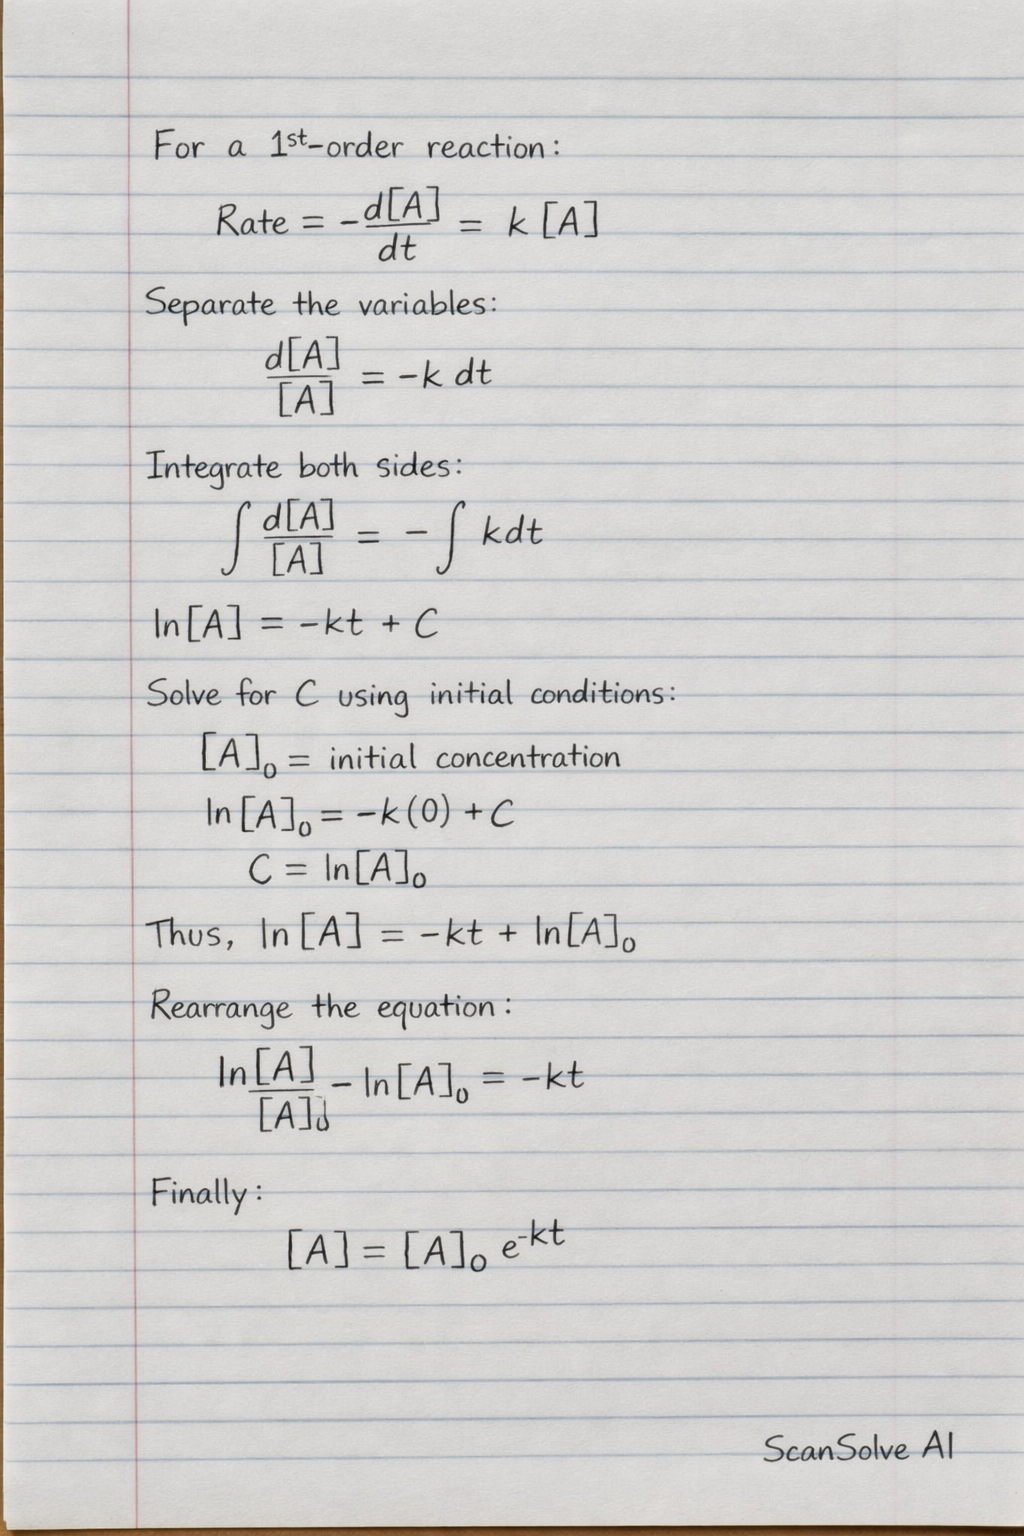 For a 1st-order reaction:
Rate = -d[A]/dt = k [A]
Separate the variables:
d[A]/[A] = -k dt
Integrate both sides:
∫ d[A]/[A] = - ∫ kdt
ln[A] = -kt + C
Solve for C using initial conditions:
[A]₀ = initial concentration
ln[A]₀ = -k(0) + C
C = ln[A]₀
Thus, ln[A] = -kt + ln[A]₀
Rearrange the equation:
ln[A]/[A]₀ - ln[A]₀ = -kt
Finally:
[A] = [A]₀ e^-kt
ScanSolve AI